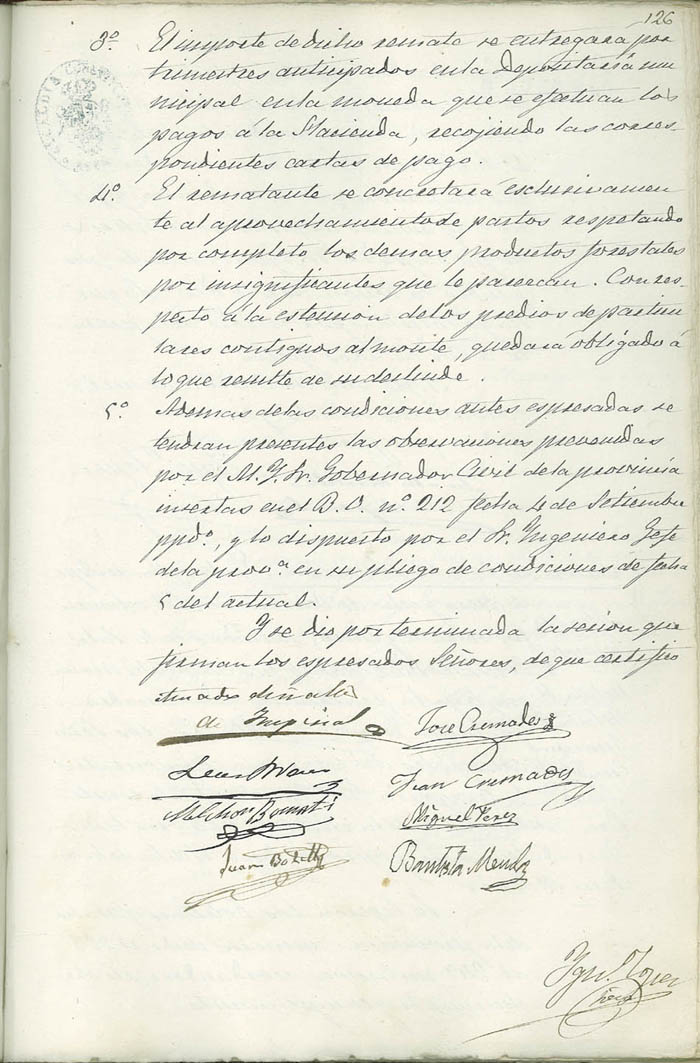 126
3º. El importe de dicho remate se entregará por
trimestres anticipados en la Depositaria mu
nicipal en la moneda que se efectuan los
pagos á la Hacienda, recojiendo las corres-
pondientes cartas de pago.
4º. El rematante se concretará esclusivamen
te al aprovechamiento de pastos respetando
por completo los demas productos forestales
por insignificantes que le parescan. Con res-
pecto á la estension de los predios de particu
lares contiguos al monte, quedará obligado á
lo que resulte de su deslinde.
5º. Ademas de las condiciones antes espresadas se
tendran presentes las observaciones prevenidas
por el M. Y. Sr. Gobernador Civil de la provincia
insertas en el B. O. nº 212 fecha 4 de Setiembre
ppdº, y lo dispuesto por el Sr. Yngeniero Gefe
de la provª en su pliego de condiciones de fecha
5 del actual.
Y se dio por terminada la sesion que
firman los espresados Señores, de que certifico
José Cremades
Juan Cremades
Melchor
Miguel Perez
Juan
Bautista